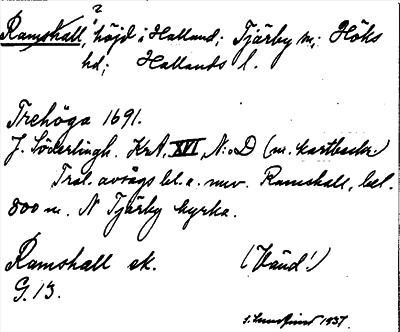 Ramshall,? höjd i Halland; Tjärby sn; Höks
hd; Hallands l.
Trehöga 1691.
J. Söderlingh. KrA, XVI, N:o D (m. kartbeskr.)
Trol. avsågs bl. a. nuv. Ramshall, bel.
800 m. N Tjärby kyrka.
Ramshall ek. (Vänd!)
G. 13.
1937